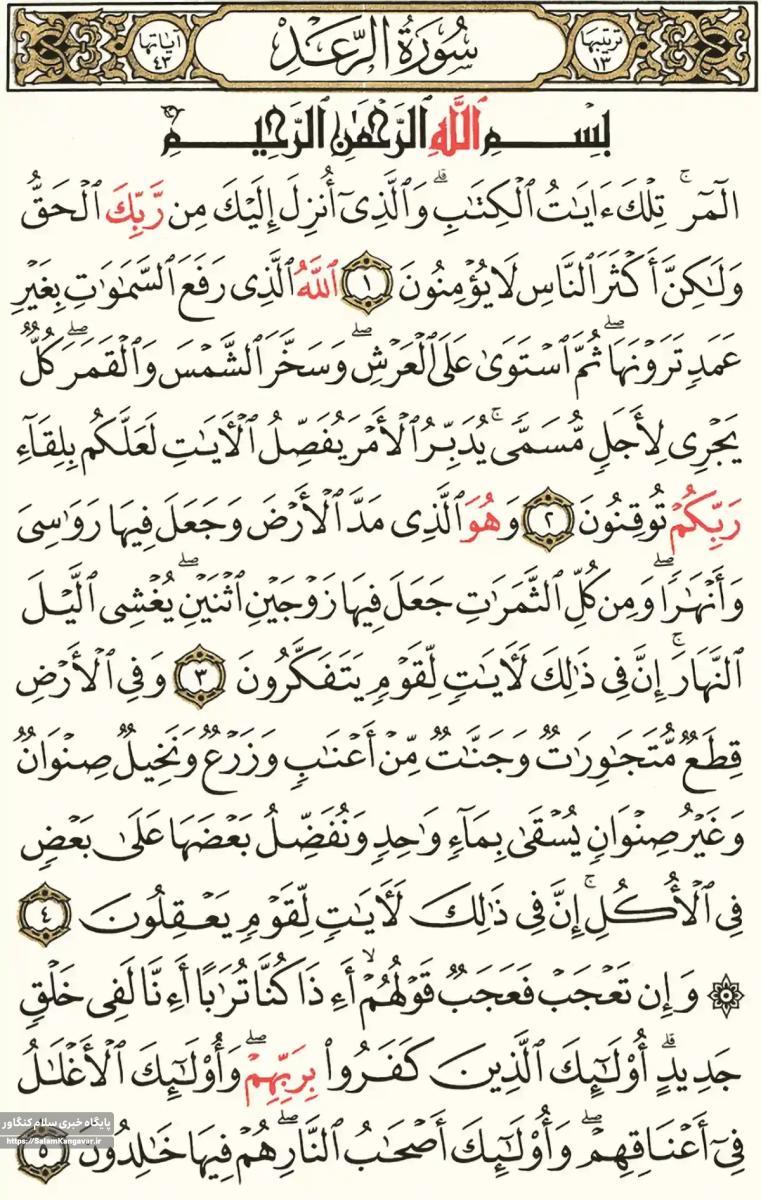 ترتيبها ١٣
سُورَةُ الرَّعْدِ
آياتها ٤٣
بِسْمِ ٱللَّهِ ٱلرَّحْمَٰنِ ٱلرَّحِيمِ
الٓمٓر ۚ تِلْكَ ءَايَٰتُ ٱلْكِتَٰبِ ۗ وَٱلَّذِىٓ أُنزِلَ إِلَيْكَ مِن رَّبِّكَ ٱلْحَقُّ
وَلَٰكِنَّ أَكْثَرَ ٱلنَّاسِ لَا يُؤْمِنُونَ ١ ٱللَّهُ ٱلَّذِى رَفَعَ ٱلسَّمَٰوَٰتِ بِغَيْرِ
عَمَدٍ تَرَوْنَهَا ۖ ثُمَّ ٱسْتَوَىٰ عَلَى ٱلْعَرْشِ ۖ وَسَخَّرَ ٱلشَّمْسَ وَٱلْقَمَرَ ۖ كُلٌّ
يَجْرِى لِأَجَلٍ مُّسَمًّى ۚ يُدَبِّرُ ٱلْأَمْرَ يُفَصِّلُ ٱلْءَايَٰتِ لَعَلَّكُم بِلِقَآءِ
رَبِّكُمْ تُوقِنُونَ ٢ وَهُوَ ٱلَّذِى مَدَّ ٱلْأَرْضَ وَجَعَلَ فِيهَا رَوَٰسِىَ
وَأَنْهَٰرًا ۖ وَمِن كُلِّ ٱلثَّمَرَٰتِ جَعَلَ فِيهَا زَوْجَيْنِ ٱثْنَيْنِ ۖ يُغْشِى ٱلَّيْلَ
ٱلنَّهَارَ ۚ إِنَّ فِى ذَٰلِكَ لَءَايَٰتٍ لِّقَوْمٍ يَتَفَكَّرُونَ ٣ وَفِى ٱلْأَرْضِ
قِطَعٌ مُّتَجَٰوِرَٰتٌ وَجَنَّٰتٌ مِّنْ أَعْنَٰبٍ وَزَرْعٌ وَنَخِيلٌ صِنْوَانٌ
وَغَيْرُ صِنْوَانٍ يُسْقَىٰ بِمَآءٍ وَٰحِدٍ وَنُفَضِّلُ بَعْضَهَا عَلَىٰ بَعْضٍ
فِى ٱلْأُكُلِ ۚ إِنَّ فِى ذَٰلِكَ لَءَايَٰتٍ لِّقَوْمٍ يَعْقِلُونَ ٤
۞ وَإِن تَعْجَبْ فَعَجَبٌ قَوْلُهُمْ أَءِذَا كُنَّا تُرَٰبًا أَءِنَّا لَفِى خَلْقٍ
جَدِيدٍ ۗ أُو۟لَٰٓئِكَ ٱلَّذِينَ كَفَرُوا۟ بِرَبِّهِمْ ۖ وَأُو۟لَٰٓئِكَ ٱلْأَغْلَٰلُ
فِىٓ أَعْنَاقِهِمْ ۖ وَأُو۟لَٰٓئِكَ أَصْحَٰبُ ٱلنَّارِ ۖ هُمْ فِيهَا خَٰلِدُونَ ٥
پایگاه خبری سلام کنگاور
https://SalamKangavar.ir